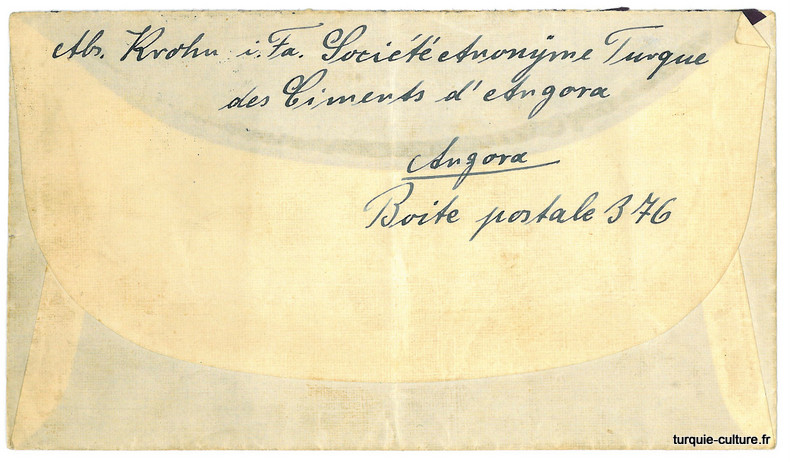 Abs. Krohn i. Fa. Société Anonÿme Turque
des Ciments d'Angora
Angora
Boite postale 376
turquie-culture.fr